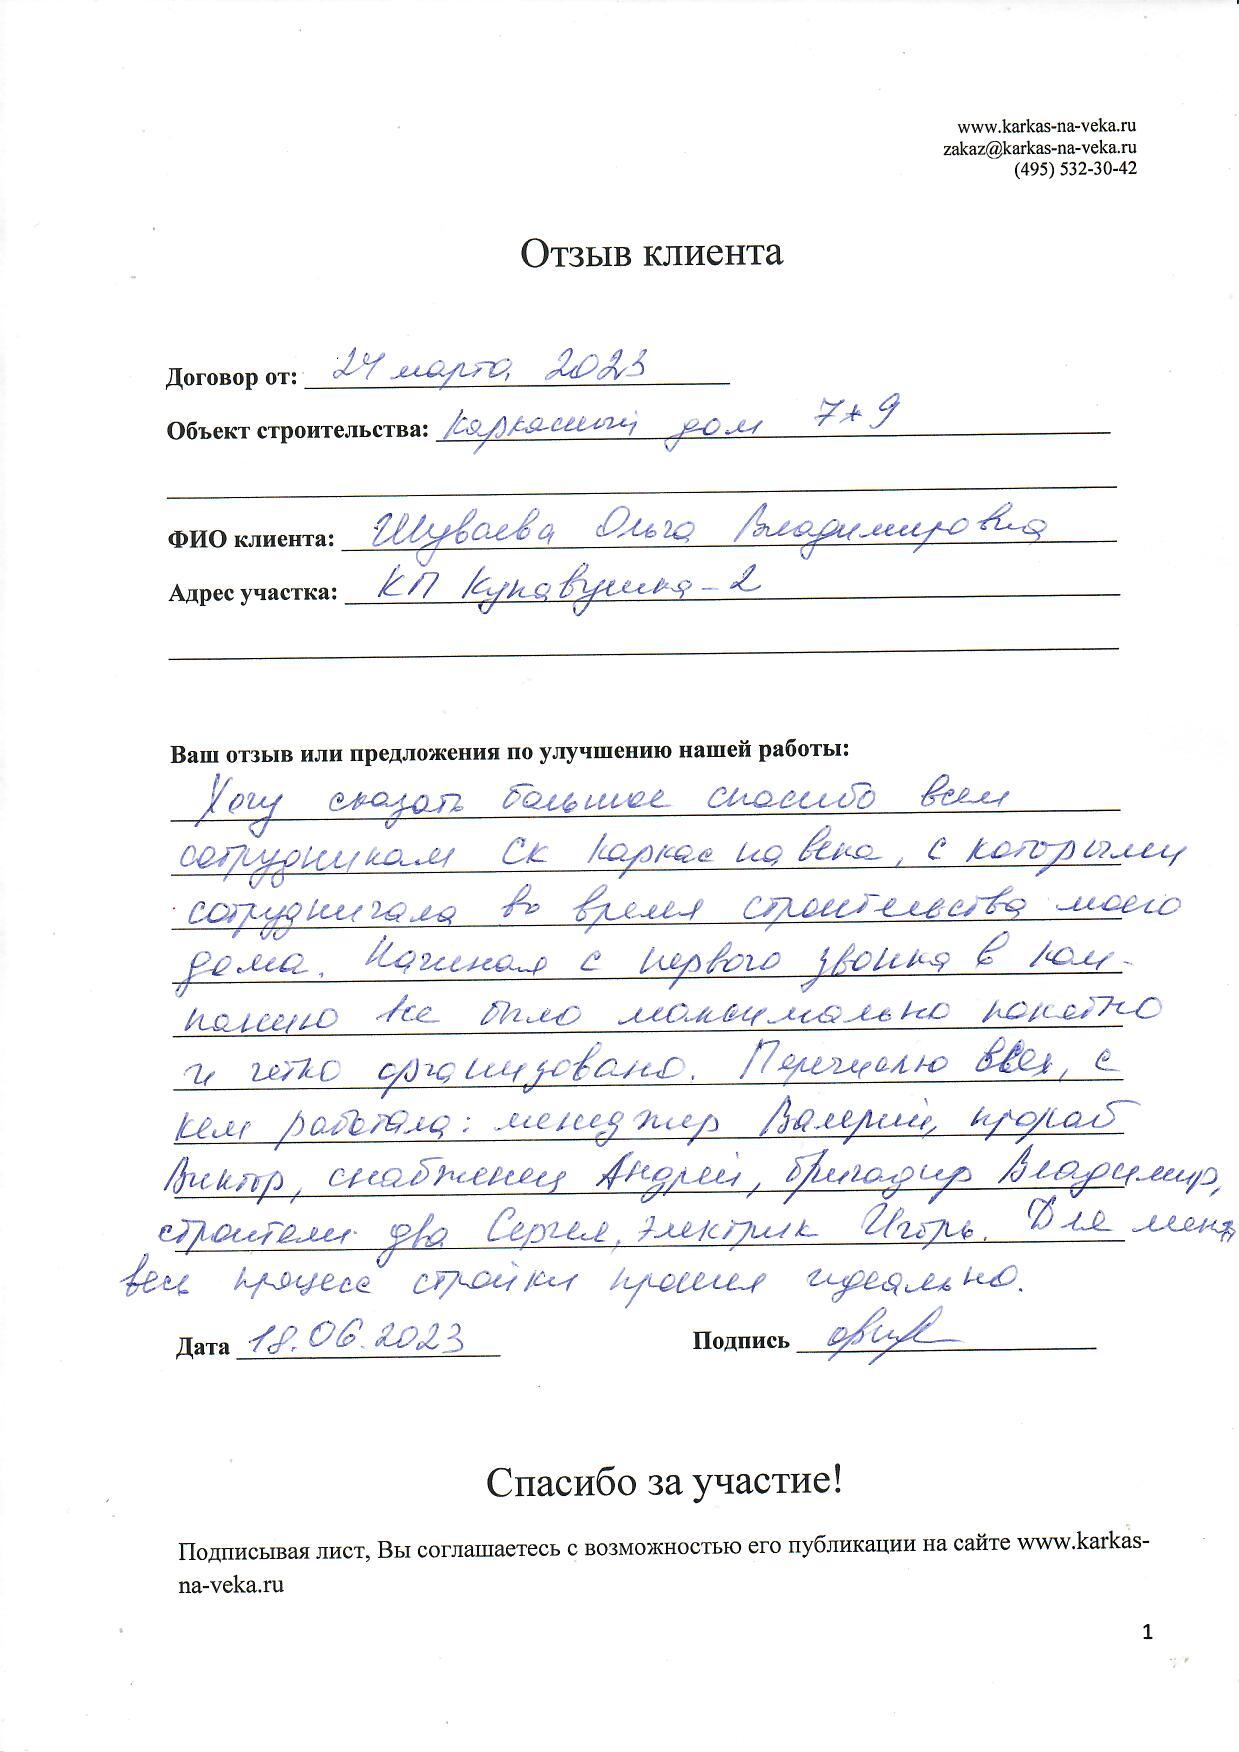 www.karkas-na-veka.ru
zakaz@karkas-na-veka.ru
(495) 532-30-42
Отзыв клиента
Договор от: 24 марта 2023
Объект строительства: Каркасный дом 7*9
ФИО клиента: Шуваева Ольга Владимировна
Адрес участка: КП Кунавушка-2
Ваш отзыв или предложения по улучшению нашей работы:
Хочу сказать большое спасибо всем
сотрудникам СК Каркас на века, с которыми
сотрудничала во время строительства моего
дома. Начиная с первого звонка в ком-
панию все было максимально понятно
и четко организовано. Перечислю всех, с
кем работала: менеджер Валерий, прораб
Виктор, снабженец Андрей, бригадир Владимир,
строители два Сергея, электрик Игорь. Для меня
весь процесс стройки прошел идеально.
Дата 18.06.2023 Подпись
Спасибо за участие!
Подписывая лист, Вы соглашаетесь с возможностью его публикации на сайте www.karkas-
na-veka.ru
1